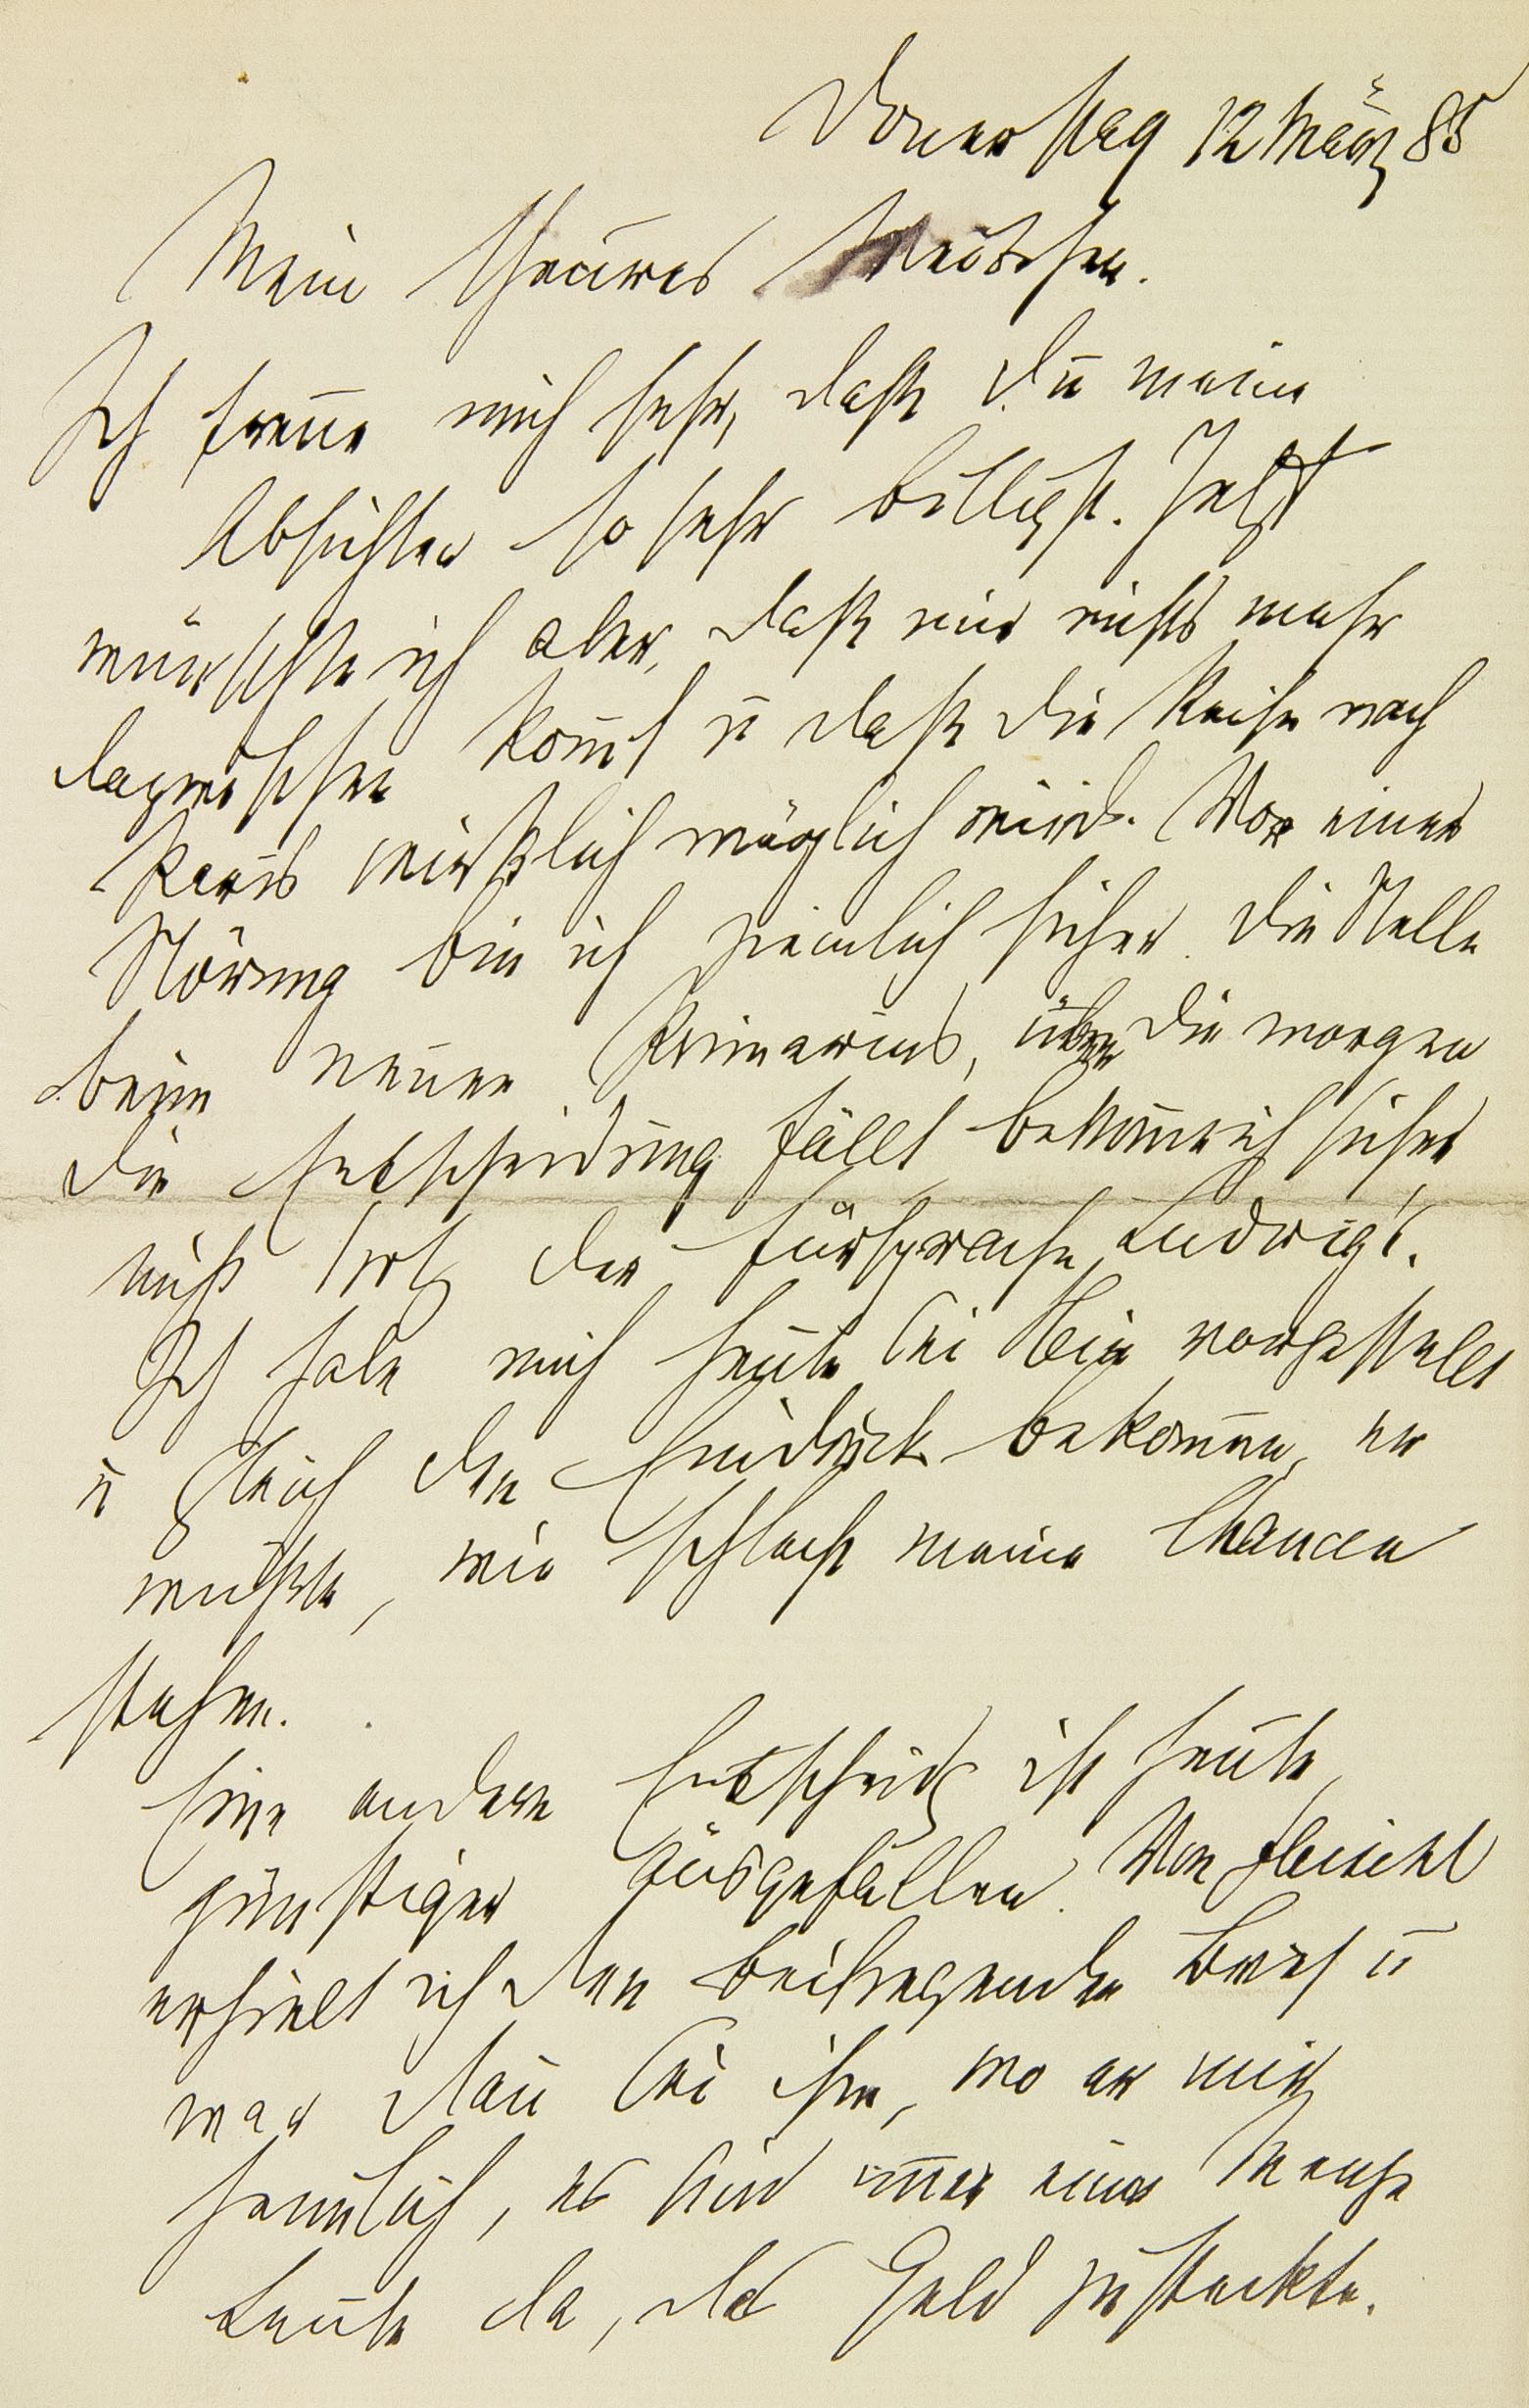 Donerstag 12 März 85
Mein theures Mädchen.
Ich freue mich sehr, daß Du meine
Absichten so sehr billigst. Jetzt
wünschte ich aber, daß mir nichts mehr
dazwischen kom̄t u daß die Reise nach
Paris wirklich möglich wird. Vor einer
Störung bin ich ziemlich sicher. Die Stelle
beim neuen Primarius, über die morgen
die Entscheidung fällt bekom̄e ich sicher
nicht trotz der Fürsprache Ludwig's.
Ich habe mich heute bei vorgestellt
u gleich den Eindruck bekom̄en, er
wüßte, wie schlecht meine Chancen
stehen.
Eine andere Entscheidg ist heute
günstiger ausgefallen. Von Fleischl
erhielt ich den beiliegenden Brief u
war dan̄ bei ihm, wo er mir
heimlich, es sind im̄er eine Menge
Leute da, das Geld zusteckte.